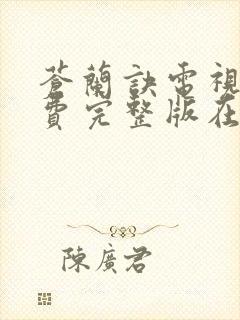 蒼蘭訣電視
費完整版在
陳廣君